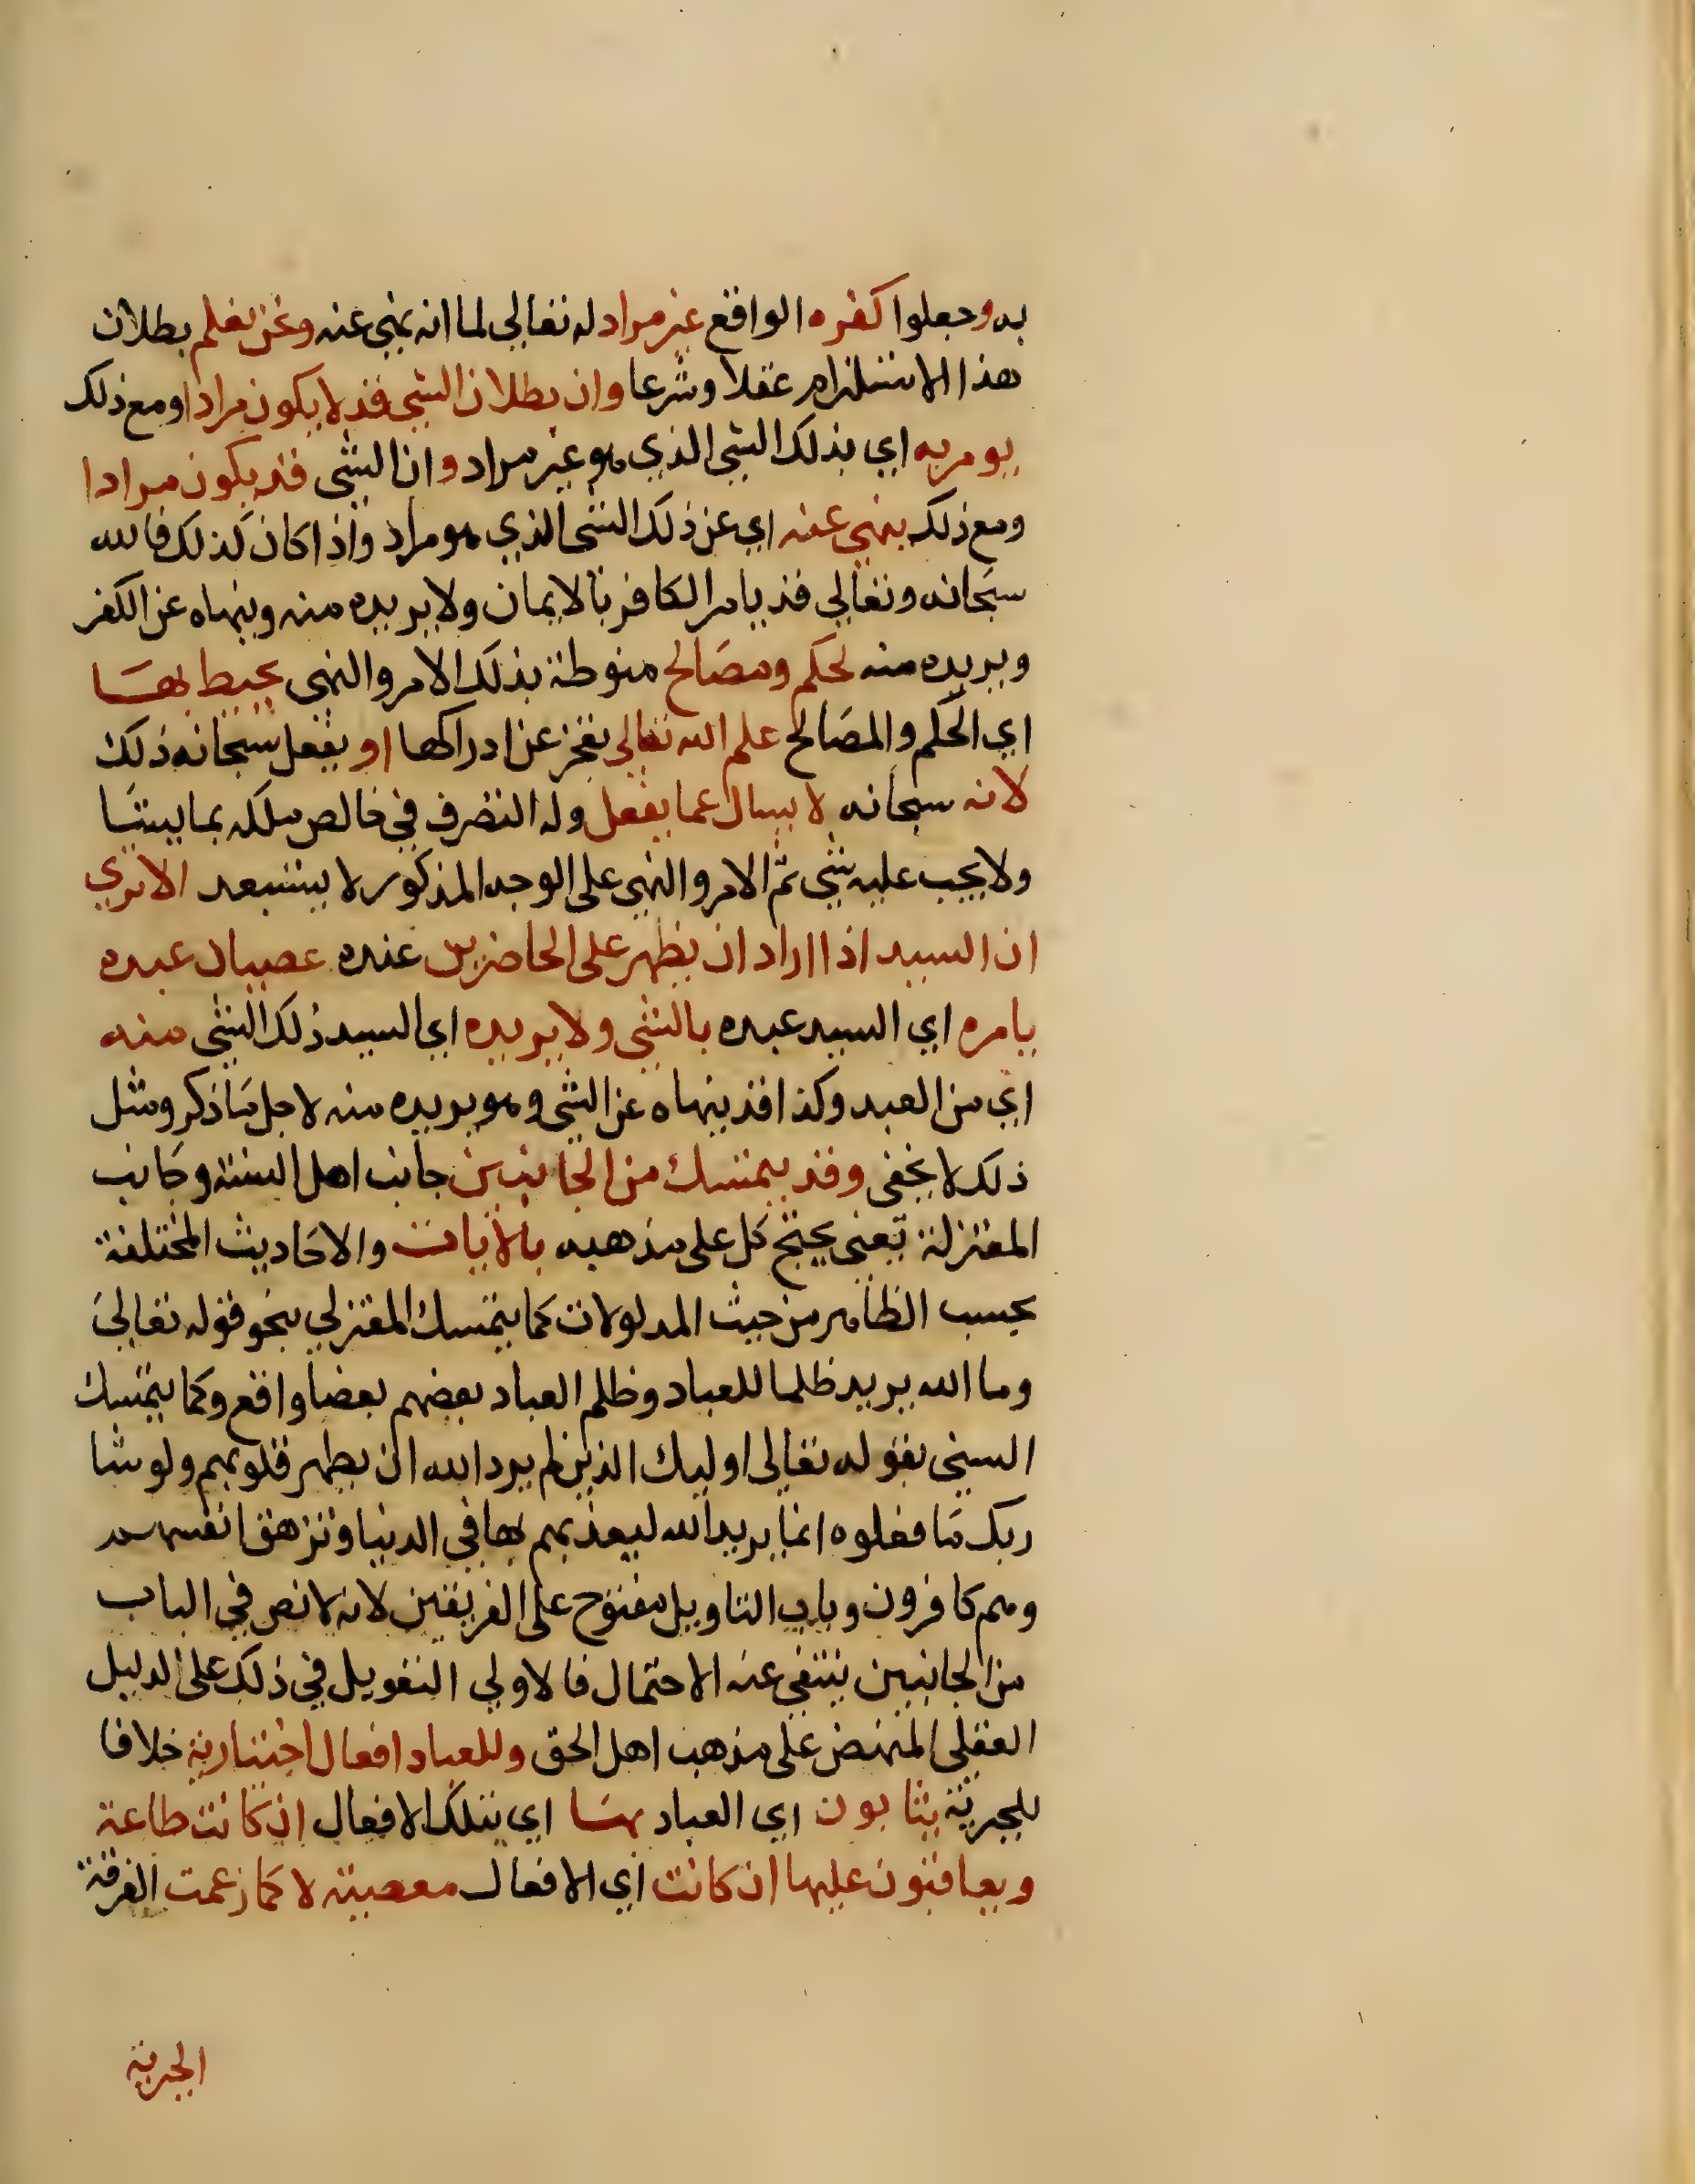 به وجعلوا كفره الواقع غير مراد له تعالي لما انه نهي عنه ونحن نعلم بطلان
هذا الاستلزام عقلا وشرعا وان بطلان الشي قد لا يكون مرادا ومع ذلك
يومر به اي بذلك الشي الذي هو غير مراد وان الشي قد يكون مرادا
ومع ذلك ينهي عنه اي عن ذلك الشي الذي هو مراد واذا كان كذلك فالله
سبحانه وتعالي قد يامر الكافر بالايمان ولا يريده منه وينهاه عن الكفر
ويريده منه لحكم ومصالح منوطة بذلك الامر والنهي يحيط بها
اي الحكم والمصالح علم الله تعالي نعجز عن ادراكها او يفعل سبحانه ذلك
لانه سبحانه لا يسال عما يفعل وله التصرف في خالص ملكه بما يشا
ولا يجب عليه شي ثم الامر والنهي على الوجه المذكور لا يستبعد الا تري
ان السيد اذا اراد ان يظهر على الحاضرين عنده عصيان عبده
يامره اي السيد عبده بالشي ولا يريده اي السيد ذلك الشي منه
اي من العبد وكذا قد ينهاه عن الشي وهو يريده منه لاجل ما ذكر ومثل
ذلك لا يخفى وقد يتمسك من الجانبين جانب اهل السنة وجانب
المعتزلة يعني يحتج كل على مذهبه بالايات والاحاديث المختلفة
بحسب الظاهر من حيث المدلولات كما يتمسك المعتزلي بنحو قوله تعالي
وما الله يريد ظلما للعباد وظلم العباد بعضهم بعضا واقع وكما يتمسك
السني بقوله تعالى اوليك الذين لم يرد الله ان يطهر قلوبهم ولو شا
ربك ما فعلوه انما يريد الله ليعذبهم بها في الدنيا وتزهق انفسهم
وهم كافرون وباب التاويل مفتوح على الفريقين لانه لا نص في الباب
من الجانبين ينتفي عنه الاحتمال فالاولي التعويل في ذلك على الدليل
العقلي المنهض على مذهب اهل الحق وللعباد افعال اختيارية خلافا
للجبرية يثابون اي العباد بها اي بتلك الافعال ان كانت طاعة
ويعاقبون عليها ان كانت اي الافعال معصية لا كما زعمت الفرقة
الجبرية